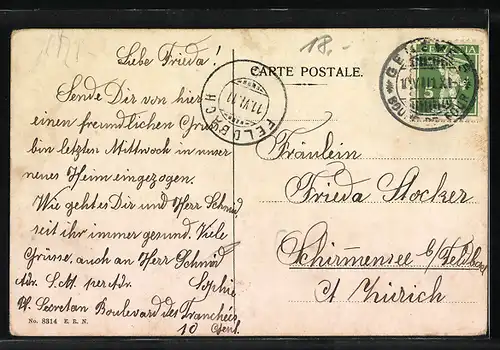 18.-
Liebe Frieda!
CARTE POSTALE.
HELVETIA
5
GENÈVE
FELDBACH
11.VI.11
Sende Dir von hier
einen freundlichen Gruss
bin letzten Mittwoch in unser
neues Heim eingezogen.
Wie geht es Dir und Herr Schmid
seit ihr immer gesund. Viele
Grüsse, auch an Herr Schmid
Sophie
Adr. S.M. per Adr.
Secretan Boulevard des Tranchées
10 Genf.
Fräulein
Frieda Stocker
Schirmensee b/Feldbach
Ct Zürich
No. 8314 E. R. N.